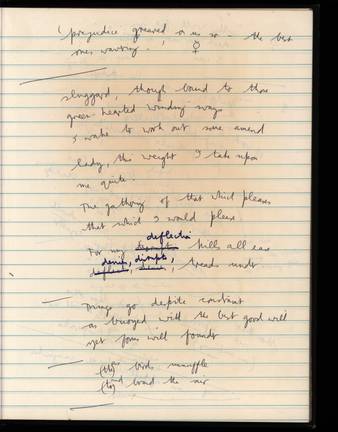 'prejudice greaved on us so - the best
ones wanting.' ♀
sluggard, though bound to those
green hearted winding ways
I wake to work out some amend
lady, this weight I take upon
me quite.
The gathering of that which pleases
that which I would please.
deflection
For my kills all ease
denies, disrupts,
treads under
Things go despite constant
as buoyed will the best good will
yet form will founder
(the) birds unmuffle
(to) and the air